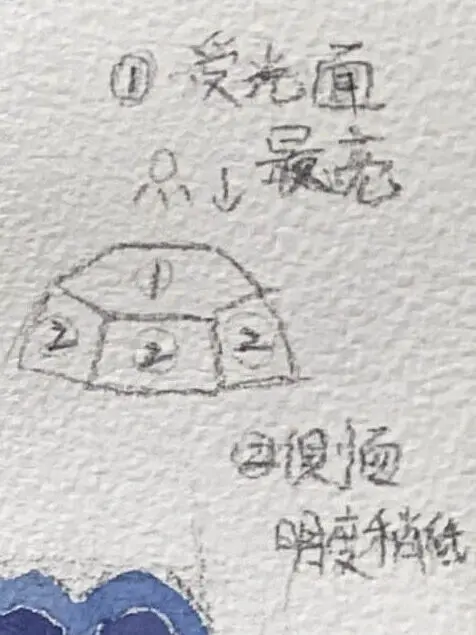 ① 受光面
最亮
①
② ② ②
②侧面
明度稍低